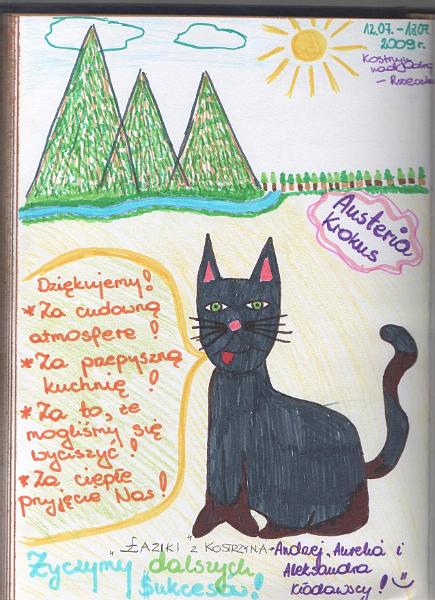 12.07. – 18.07
2009 r.
Kostrzyn
nad Odrą
Austeria
Krokus
Dziękujemy!
* Za cudowną
atmosferę!
* Za przepyszną
kuchnię!
* Za to, że
mogliśmy się
wyciszyć!
* Za ciepłe
przyjęcie Nas!
"ŁAZIKI" z KOSTRZYNA - Andrzej, Aurelia i
Aleksandra
Kłodawscy!
Życzymy dalszych
Sukcesów!